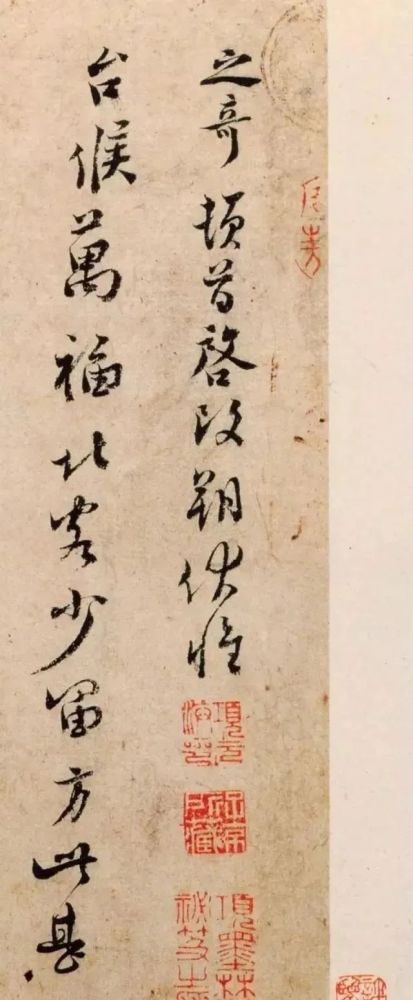 之奇頓首啓改朔伏惟
台候萬福北客少留方此甚